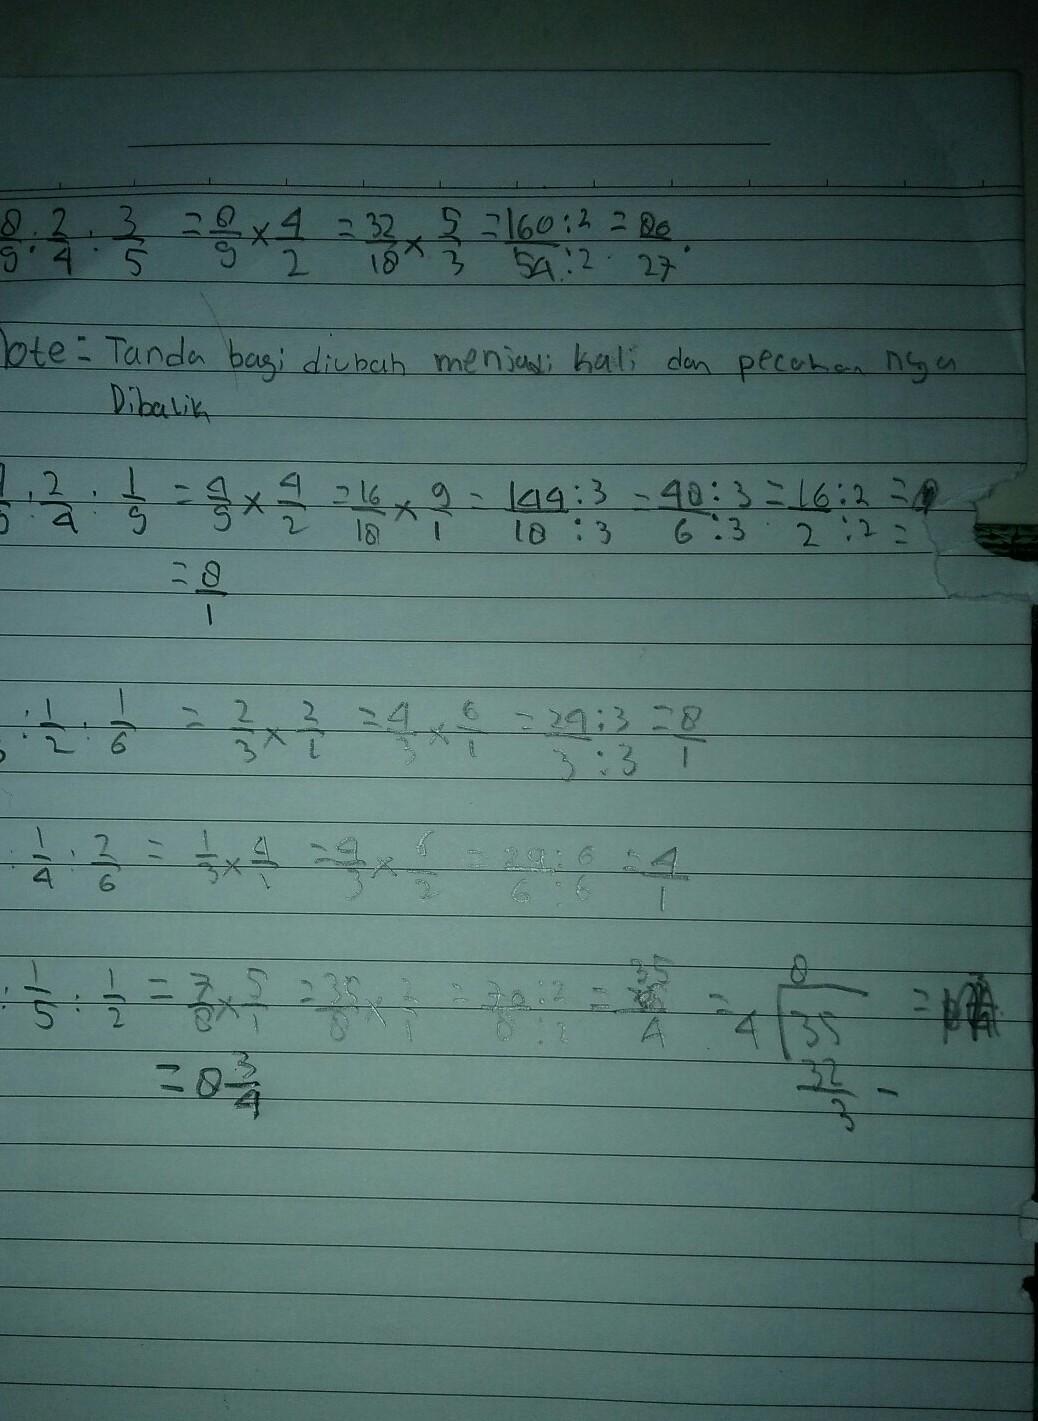 8/9 : 2/4 : 3/5 = 8/9 × 4/2 = 32/18 × 5/3 = 160:2/54:2 = 80/27.
Note = Tanda bagi diubah menjadi kali dan pecahan nya
Dibalik
: 2/4 : 1/9 = 4/9 × 4/2 = 16/18 × 9/1 = 144:3/18:3 = 48:3/6:3 = 16:2/2:2 =
= 8/1
: 1/2 : 1/6 = 2/3 × 2/1 = 4/3 × 6/1 = 24:3/3:3 = 8/1
1/4 : 2/6 = 1/3 × 4/1 = 4/3 × 6/2 = 24:6/6:6 = 4/1
: 1/5 : 1/2 = 7/8 × 5/1 = 35/8 × 2/1 = 70:2/8:2 = 35/4 = 4 √35 8 =
32 −
3
= 8 3/4